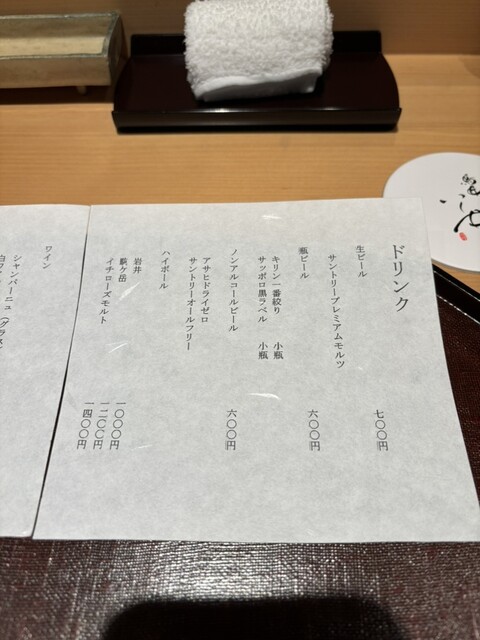 ドリンク
生ビール
サントリープレミアムモルツ
七〇〇円
瓶ビール
キリン一番絞り 小瓶
サッポロ黒ラベル 小瓶
六〇〇円
ノンアルコールビール
アサヒドライゼロ
サントリーオールフリー
六〇〇円
ハイボール
岩井 一〇〇〇円
駒ヶ岳 一二〇〇円
イチローズモルト 一四〇〇円
ワイン
シャンパーニュ（グラス）